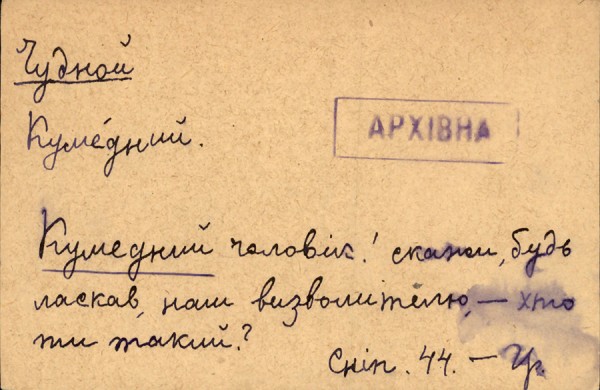 Чудной
Куме́дний.
АРХІВНА
Кумедний чоловік! скажи, будь
ласкав, наш визволителю, — хто
ти такий?
Сніп. 44. — Гр.